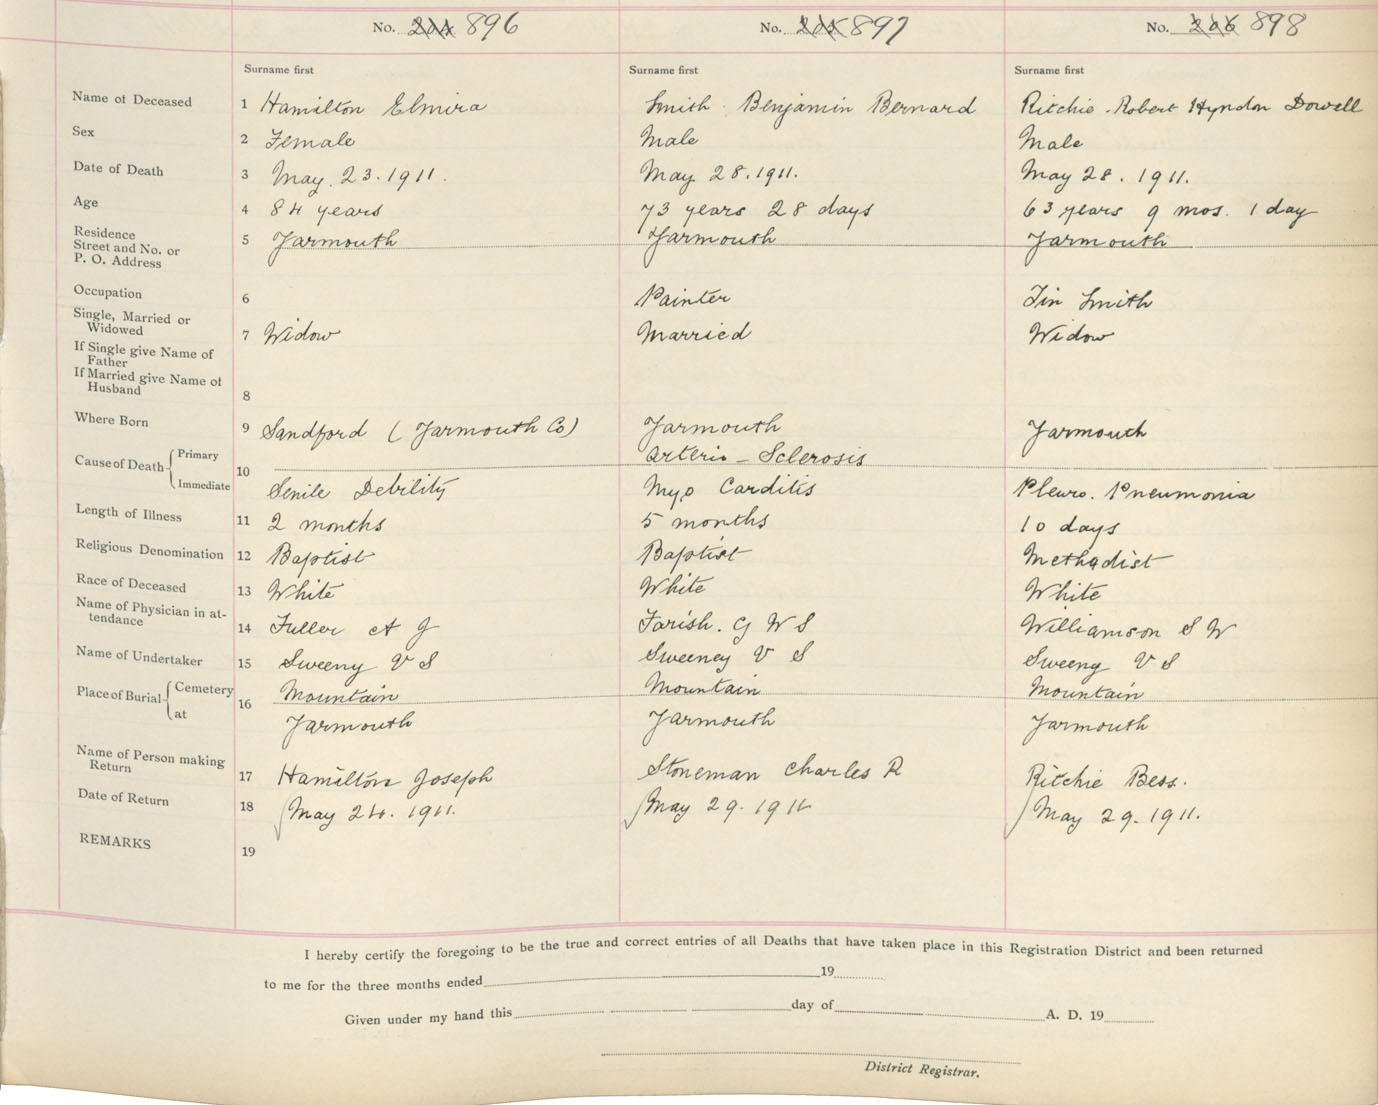 No. 204 896 No. 205 897 No. 206 898
Surname first Surname first Surname first
Name of Deceased 1 Hamilton Elmira Smith Benjamin Bernard Ritchie - Robert Hyndon Dowell
Sex 2 Female Male Male
Date of Death 3 May. 23. 1911. May. 28. 1911. May 28. 1911.
Age 4 84 years 73 years 28 days 63 years 9 mos. 1 day
Residence
Street and No. or
P. O. Address 5 Yarmouth Yarmouth Yarmouth
Occupation 6 Painter Tin Smith
Single, Married or
Widowed 7 Widow Married Widow
If Single give Name of
Father
If Married give Name of
Husband 8
Where Born 9 Sandford (Yarmouth Co) Yarmouth Yarmouth
Cause of Death Primary 10 Arterio - Sclerosis
Immediate Senile Debility Myo Carditis Pleuro. Pneumonia
Length of Illness 11 2 months 5 months 10 days
Religious Denomination 12 Baptist Baptist Methodist
Race of Deceased 13 White White White
Name of Physician in at-
tendance 14 Fuller A J Farish. G W S Williamson S W
Name of Undertaker 15 Sweeny V S Sweeney V S Sweeny V S
Place of Burial Cemetery 16 Mountain Mountain Mountain
at Yarmouth Yarmouth Yarmouth
Name of Person making
Return 17 Hamilton Joseph Stoneman Charles R Ritchie Bess.
Date of Return 18 May 24. 1911. May 29. 1911 May 29. 1911.
REMARKS 19
I hereby certify the foregoing to be the true and correct entries of all Deaths that have taken place in this Registration District and been returned
to me for the three months ended 19
Given under my hand this day of A. D. 19
District Registrar.